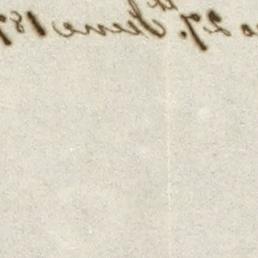 27.th June 18